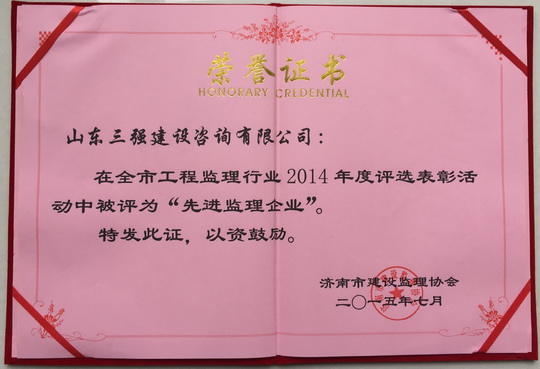 荣誉证书
HONORARY CREDENTIAL
山东三强建设咨询有限公司：
在全市工程监理行业2014年度评选表彰活
动中被评为“先进监理企业”。
特发此证，以资鼓励。
济南市建设监理协会
二〇一五年七月